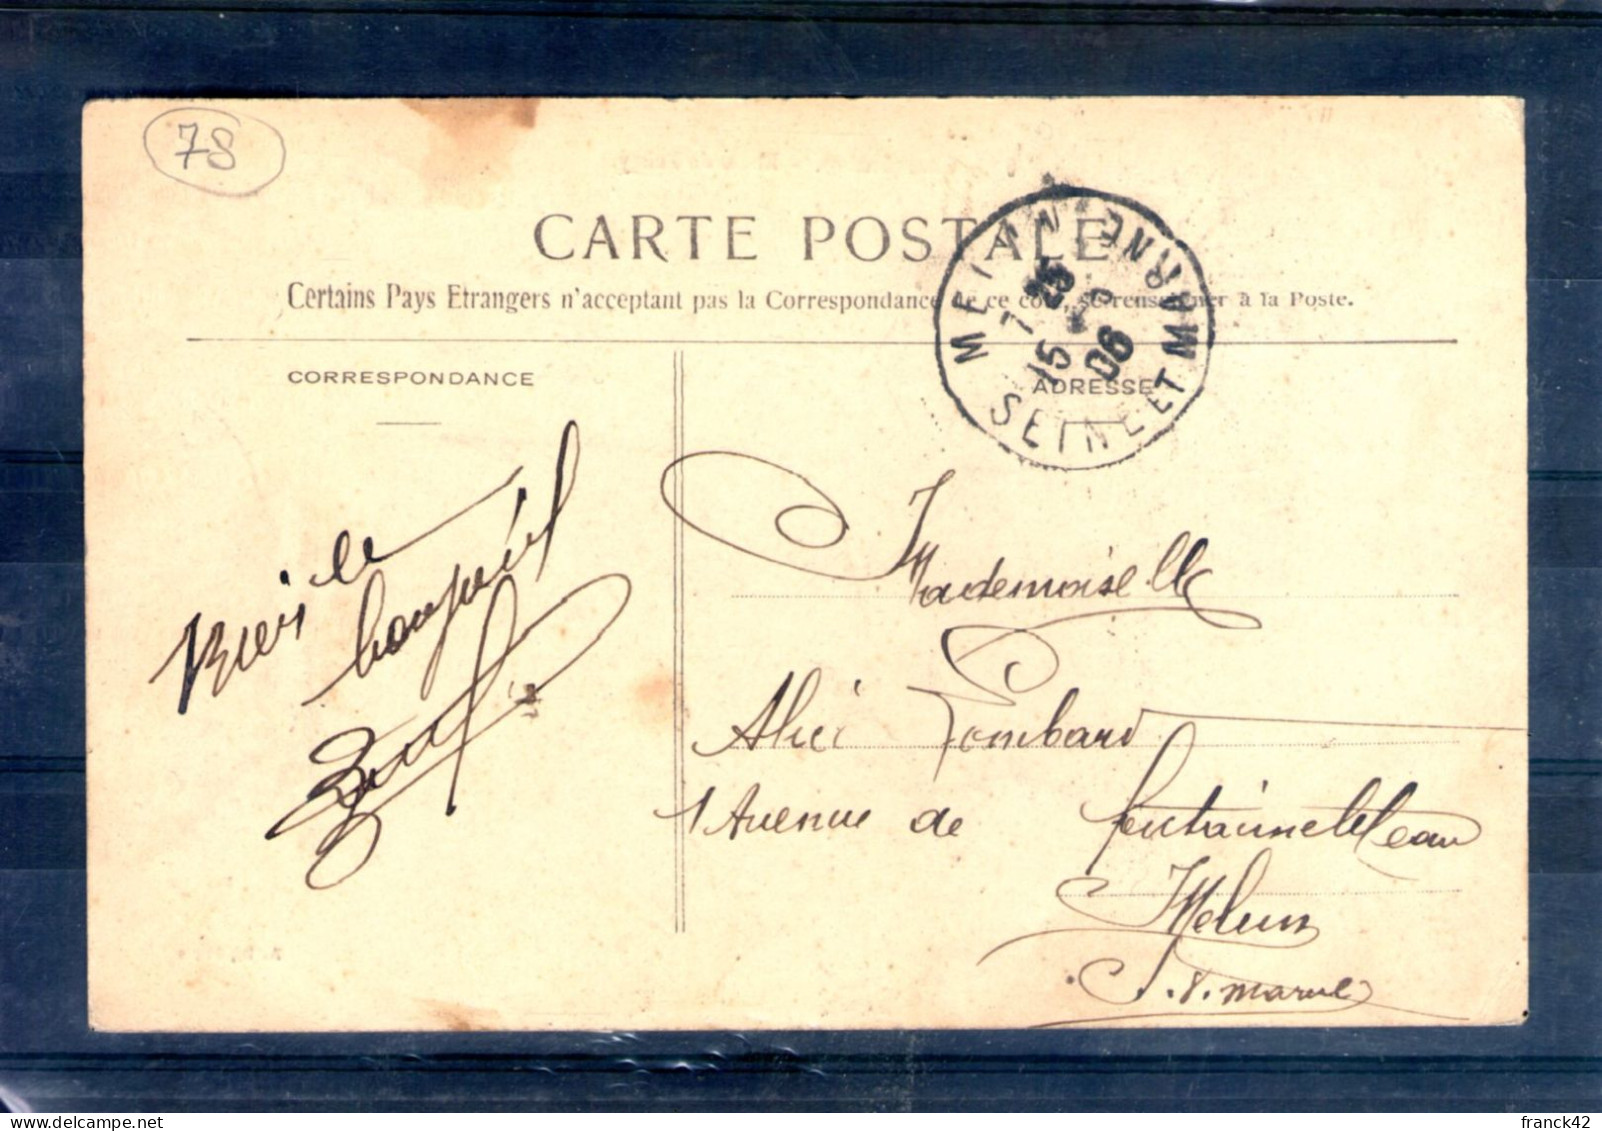 78
CARTE POSTALE
Certains Pays Etrangers n'acceptant pas la Correspondance de ce côté, se renseigner à la Poste.
CORRESPONDANCE
ADRESSE
SEINE ET MARNE
15
25
06
le
Mademoiselle
Alice Lombard
1 Avenue de Fontainebleau
Melun
S. &. Marne
franck42